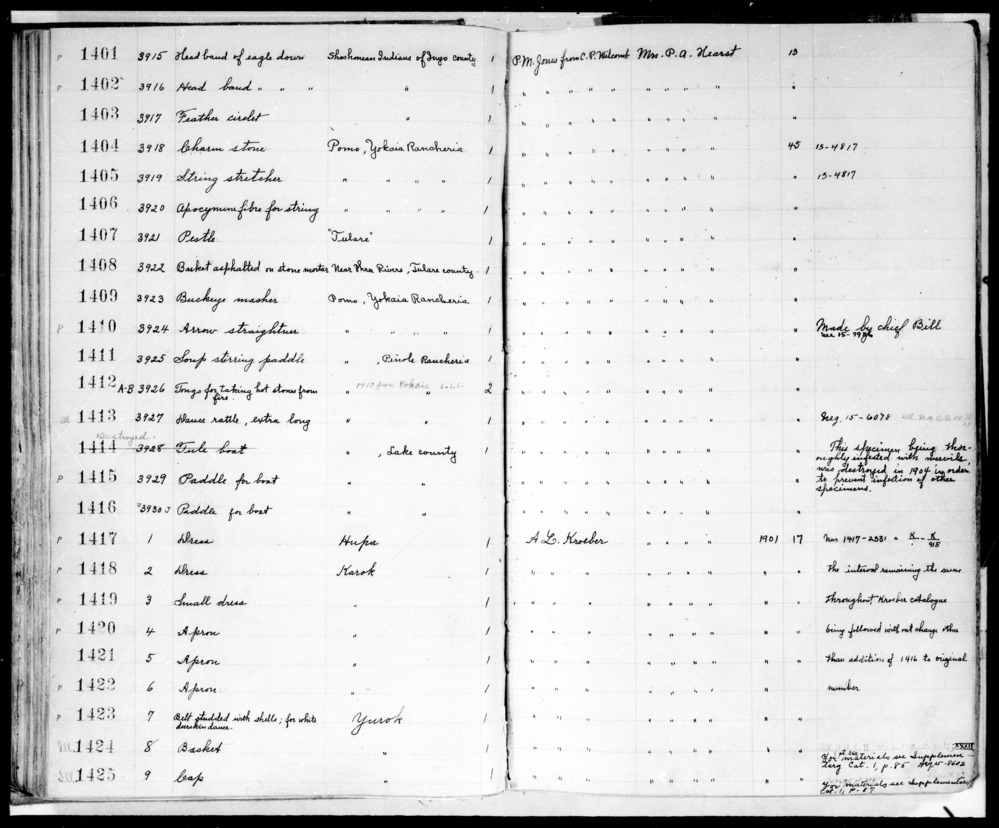 P 1401 3915 Head band of eagle down Shoshonean Indians of Inyo county 1 P.M. Jones from C.P. Wilcomb Mrs. P. A. Hearst 13
P 1402 3916 Head band " " " " 1 " " " " " " " " "
1403 3917 Feather circlet " 1 " " " " " " " "
1404 3918 Charm stone Pomo, Yokaia Rancheria 1 " " " " " " " " 45 15-4817
1405 3919 String stretcher " " " " 1 " " " " " " " " " 15-4817
1406 3920 Apocynum fibre for string " " " " 1 " " " " " " " " "
1407 3921 Pestle "Tulare" 1 " " " " " " " " "
1408 3922 Basket asphalted on stone mortar Near Three Rivers, Tulare county. 1 " " " " " " " " "
1409 3923 Buckeye masher Pomo, Yokaia Rancheria 1 " " " " " " " " "
P 1410 3924 Arrow straightner " " " " 1 " " " " " " " " " Made by chief Bill
see 15-7986
1411 3925 Soup stirring paddle " , Pinole Rancheria 1 " " " " " " " " "
1412 A-B 3926 Tongs for taking hot stones from " " 2 " " " " " " " " "
fire.
1413 3927 Dance rattle, extra long " " 1 " " " " " " " " " Neg. 15-6078
Destroyed.
1414 3928 Tule boat " , Lake county 1 " " " " " " " " " This specimen being thor-
oughly infested with weevils,
was destroyed in 1904 in order
P 1415 3929 Paddle for boat " " 1 " " " " " " " " " to prevent infection of other
specimens.
1416 3930 Paddle for boat " " 1 " " " " " " " " "
P 1417 1 Dress Hupa 1 A. L. Kroeber " " " " 1901 17 Nos 1417-2331 = K/1 - K/915
P 1418 2 Dress Karok 1 " " " " " " " " " the interval remaining the same
P 1419 3 Small dress " 1 " " " " " " " " " throughout Kroeber catalogue
P 1420 4 Apron " 1 " " " " " " " " " being followed without change other
1421 5 Apron " 1 " " " " " " " " " than addition of 1416 to original
P 1422 6 Apron " 1 " " " " " " " " " number
P 1423 7 Belt studded with shells; for white Yurok 1 " " " " " " " " "
deerskin dance.
Ill. 1424 8 Basket " 1 " " " " " " " " " For materials see Supplemen-
tary Cat. 1, p. 85 Neg 15-8602
Ill. 1425 9 Cap " 1 " " " " " " " " " For materials see Supplementary
Cat. 1, P-87